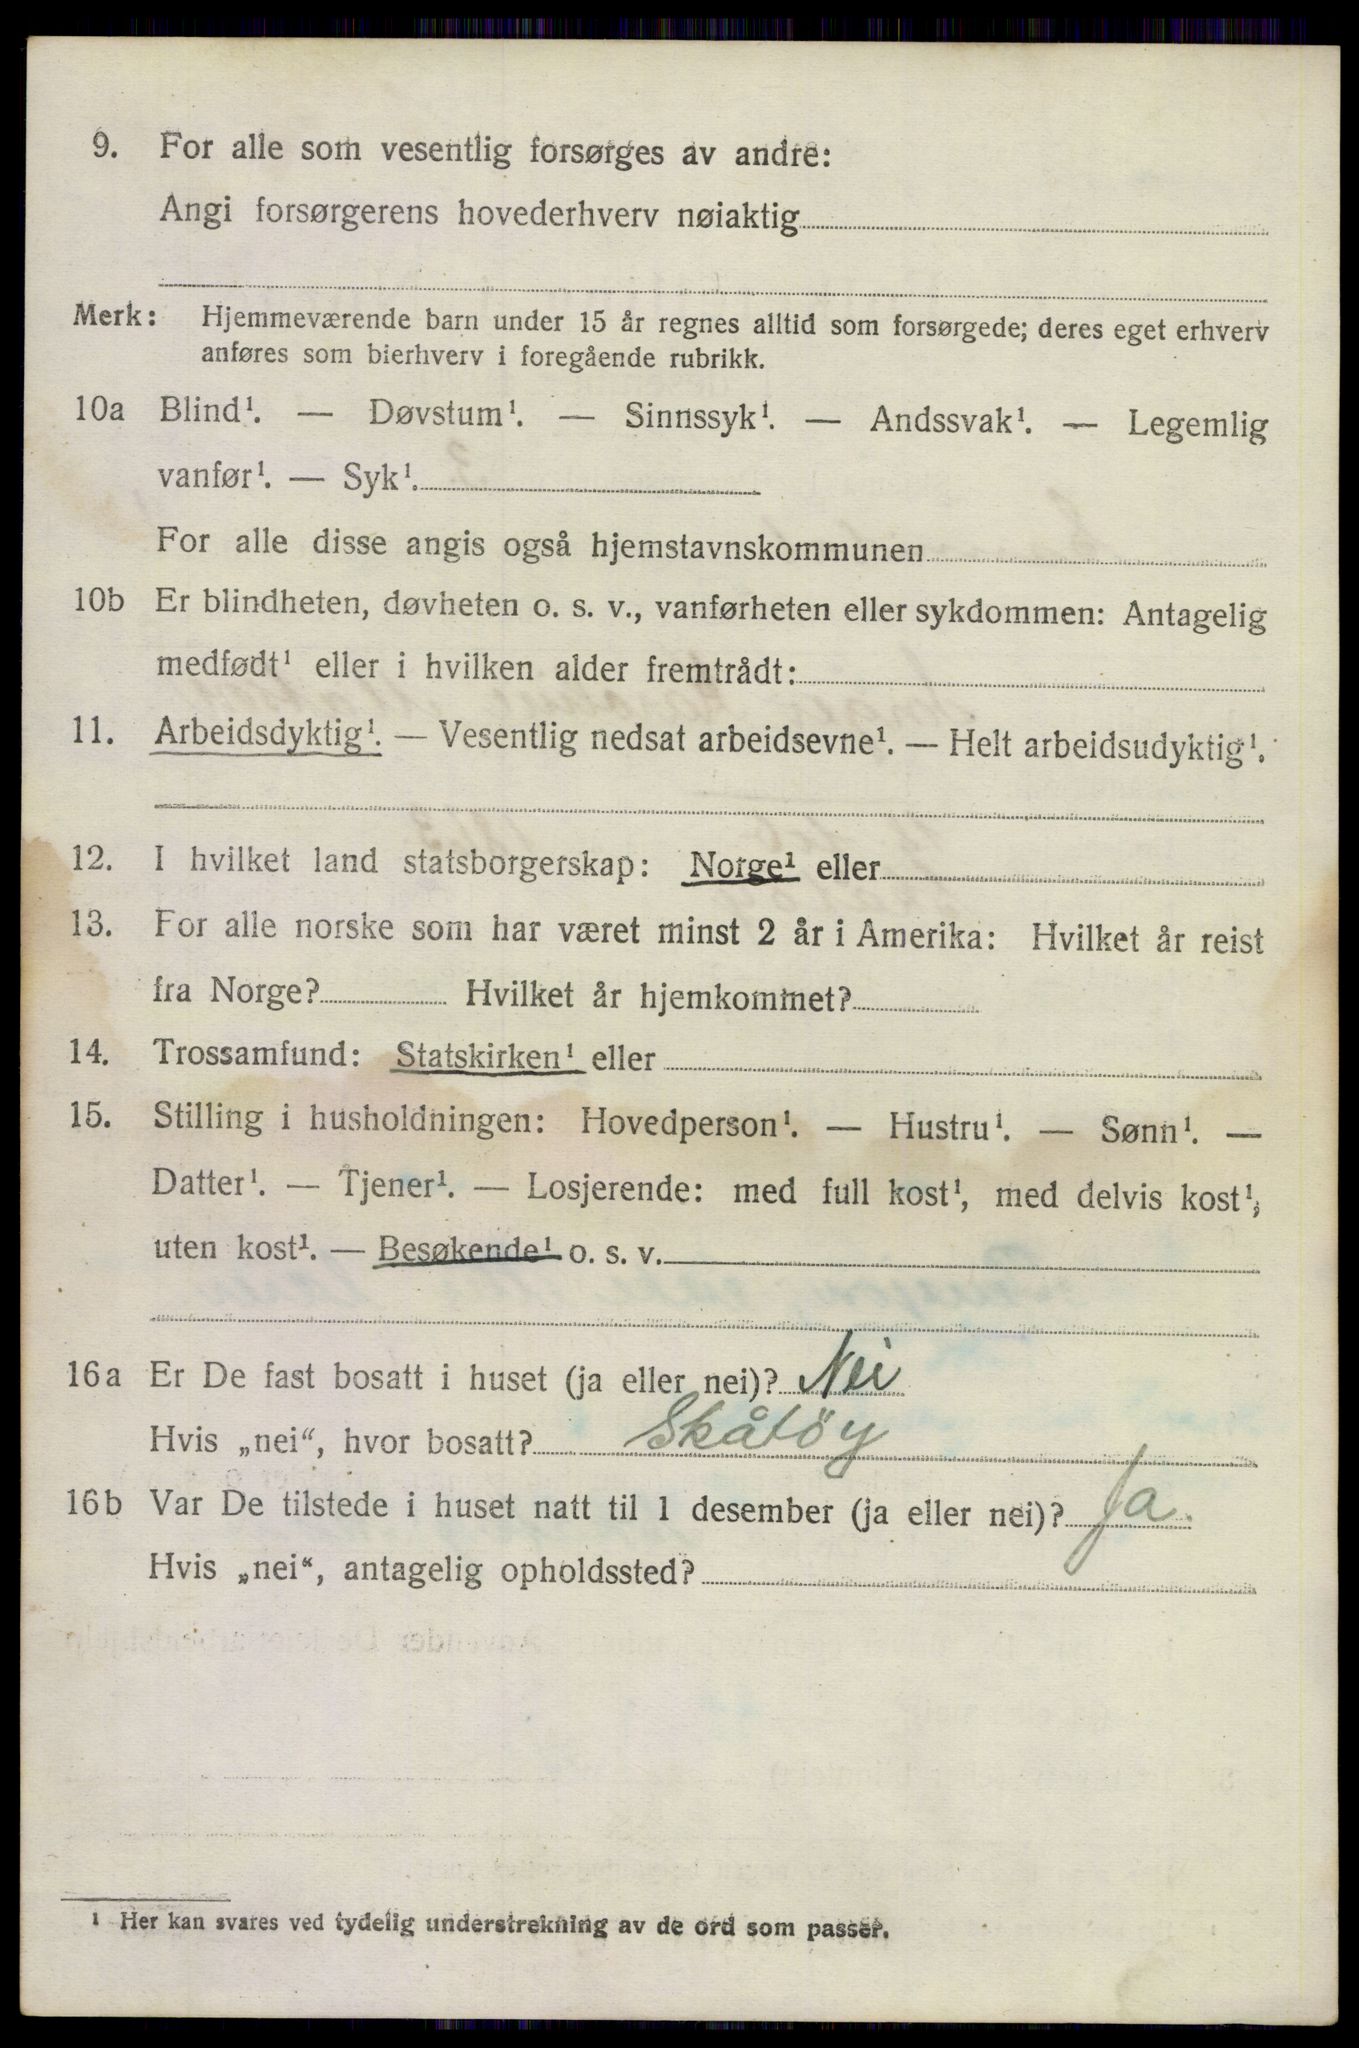 9. For alle som vesentlig forsørges av andre:
Angi forsørgerens hovederhverv nøiaktig
Merk: Hjemmeværende barn under 15 år regnes alltid som forsørgede; deres eget erhverv
anføres som bierhverv i foregående rubrikk.
10a Blind¹. — Døvstum¹. — Sinnssyk¹. — Andssvak¹. — Legemlig
vanfør¹. — Syk¹.
For alle disse angis også hjemstavnskommunen
10b Er blindheten, døvheten o. s. v., vanførheten eller sykdommen: Antagelig
medfødt¹ eller i hvilken alder fremtrådt:
11. Arbeidsdyktig¹. — Vesentlig nedsat arbeidsevne¹. — Helt arbeidsudyktig¹.
12. I hvilket land statsborgerskap: Norge¹ eller
13. For alle norske som har været minst 2 år i Amerika: Hvilket år reist
fra Norge? Hvilket år hjemkommet?
14. Trossamfund: Statskirken¹ eller
15. Stilling i husholdningen: Hovedperson¹. — Hustru¹. — Sønn¹. —
Datter¹. — Tjener¹. — Losjerende: med full kost¹, med delvis kost¹,
uten kost¹. — Besøkende¹ o. s. v.
16a Er De fast bosatt i huset (ja eller nei)? Nei
Hvis „nei“, hvor bosatt? Skåtöy
16b Var De tilstede i huset natt til 1 desember (ja eller nei)? Ja.
Hvis „nei“, antagelig opholdssted?
¹ Her kan svares ved tydelig understrekning av de ord som passer.